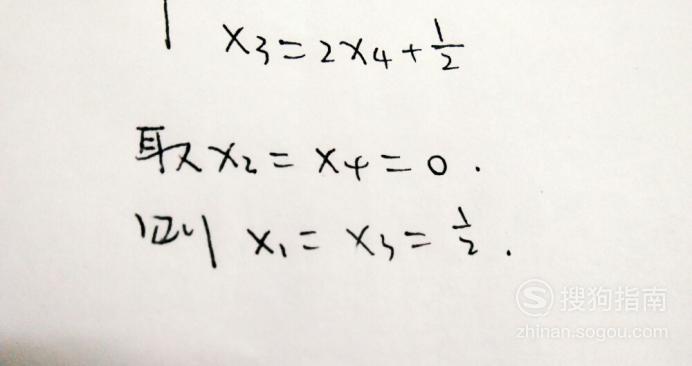 x₃=2x₄+1/2
取x₂=x₄=0.
则x₁=x₃=1/2.
搜狗指南
zhinan.sogou.com